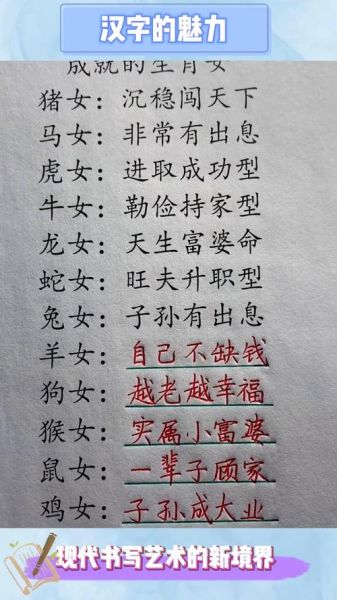 汉字的魅力
成就的生肖女
猪女：沉稳闯天下
马女：非常有出息
虎女：进取成功型
牛女：勒俭持家型
龙女：天生富婆命
蛇女：旺夫升职型
兔女：子孙有出息
羊女：自己不缺钱
狗女：越老越幸福
猴女：实属小富婆
鼠女：一辈子顾家
鸡女：子孙成大业
现代书写艺术的新境界